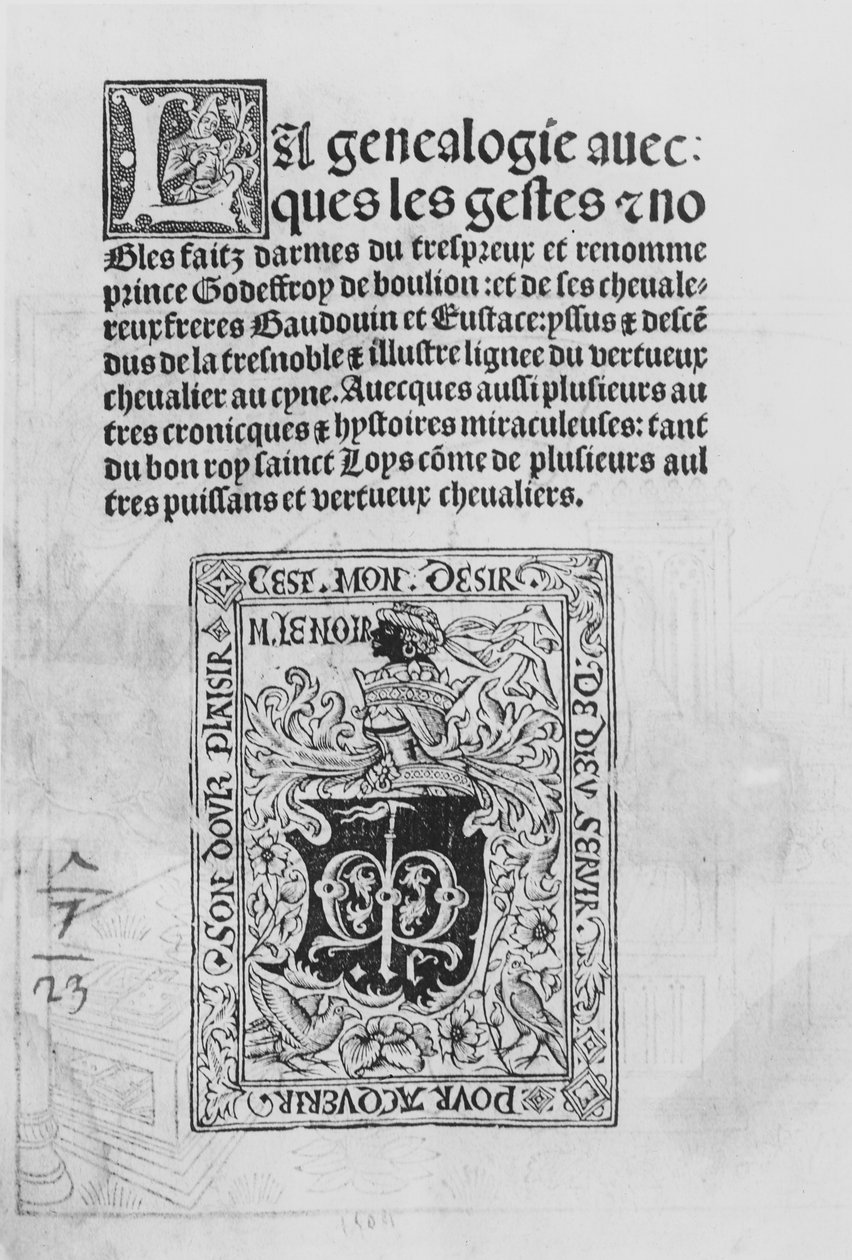 LA genealogie auec:
ques les gestes ⁊ no
Bles faitz darmes du trespreux et renomme
prince Godeffroy de boulion :et de ses cheuale⸗
reux freres Baudouin et Eustace:yssus ⁊ descē
dus de la tresnoble ⁊ illustre lignee du vertueux
cheualier au cyne. Auecques aussi plusieurs au
tres cronicques ⁊ hystoires miraculeuses: tant
du bon roy sainct Loys cōme de plusieurs aul
tres puissans et vertueux cheualiers.
CEST . MON . DESIR
DE DIEV SERVIR
POVR ACQVERIR
SON DOVlX PLAISIR
M. LE NOIR
1
7
23